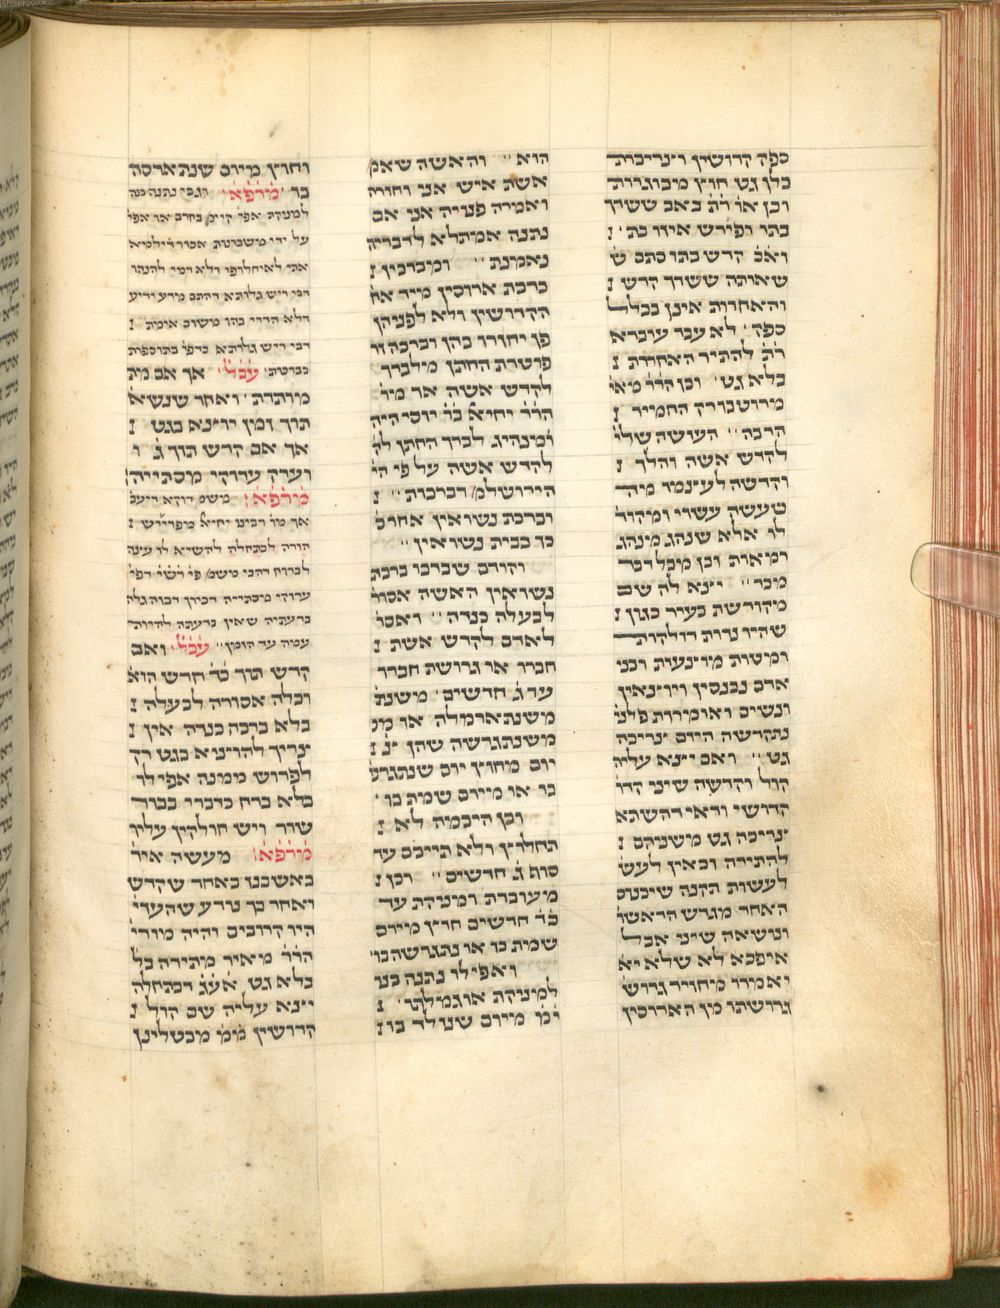 ספק קדושין וצריכות
כלן גט חוץ מבוגרות
וכן אור״ת באב ששידך
בתו ופירש איזו בת׳
ואב קדש בתו סתם ש
שאותה ששידך קדש
והאחרות אינן בכלל
ספק׳ לא עבר עובדא
ר״ת להתיר האחרות
בלא גט׳ וכן הר״ר מאי׳
מרוטבורק החמיר
הרבה׳׳ העושה שליח
לקדש אשה והלך
וקדשה לעצמו מה
שעשה עשוי ומקוד׳
לו אלא שנהג מנהג
רמאות וכן מכל דבר
מכר׳׳ יצא לה שם
מקודשת בעיר כגון
שהיו נרות דולקות
ומטות מוצעות ובני
אדם נכנסין ויוצאין
ונשים ואומרות פלני׳
נתקדשה היום צריכה
גט׳׳ ואם יצא עליה
קול וקדשה שיני קדו׳
קדושי ודאי דהשתא
צריכה גט משניהם
להתירה ובאין לעש׳
לעשות תקנה שיכנוס
האחד מגרש הראשון
ונושאה שיני אבל
איפכא לא שלא יא׳
יאמרו מחזיר גרוש׳
גרושתו מן הארוסין
הוא׳׳ והאשה שאמ׳
אשת איש אני וחזרה
ואמרה פנויה אני אם
נתנה אמתלא לדבריה
נאמנת׳׳ ומברכין
ברכת ארוסין מיד אח׳
הקדושין ולא לפניהן
פן יחזורו בהן וברכה זו
פוטרת החתן מלברך
לקדש אשה אך מו׳
הר״ר יחיאל בר׳ יוסי היה
ומנהיג לברך החתן לק׳
לקדש אשה על פי הי׳
הירושלמי דברכות׳׳
וברכת נשואין אחרכ׳
כך בבית נשואין׳׳
וקודם שברכו ברכת
נשואין האשה אסור׳
לבעלה כנדה׳׳ ואסור
לאדם לקדש אשת
חברו או גרושת חברו
עד ג׳ חדשים׳ משנת׳
משנתארמלה או מש׳
משנתגרשה שהן צ׳
יום מחוץ יום שנתגרש׳
בו או מיום שמת בו׳
וכן היבמה לא
תחלוץ ולא תייבם עד
סוף ג׳ חדשים׳׳ וכן
מעוברת ומניקה עד
כ״ד חדשים חוץ מיום
שמת בו או נתגרשה בו׳
ואפילו נתנה בנו
למניקת או גמלתו׳
ימ׳ מיום שנולד בו
וחוץ מיום שנת ארסה
בו׳ מורפ״א׳ וגבי נתנה בנה
למניקה אפי׳ קיימ׳ בחרם או אפי׳
על ידי משכונות אסור דילמא
אתי לאיחלופי ולא דמי להנהו
דבי ריש גלותא דהתם מידע ידיע
דלא הדרי בהו משום אימת׳
דבי ריש גלותא כדפי׳ בתוספות
כפרטת׳ עכ״ל׳ אך אם מת
מותרת׳ ואחר שנשא
תוך זמן יוציא בגט
אך אם קדש תוך ג׳ ו׳
וערק ערוקי מסתייה׳
מורפ״א׳ משמ׳ דוקא דיעב׳
אך מו׳ רבינו יחיאל מפריש
הורה לכתחלה להשיא לו עצה
לברוח דהכי משמ׳ פי׳ רש״י דפי׳
ערוקי מסתייה דכיון דבוה גלה
בדעתיה שאין בדעתה להיות
עמיה עד הזמן׳׳ עכ״ל׳ ואם
קדש תוך כ״ד חדש הוא
וכלה אסורה לבעלה
בלא ברכה כנדה אין
צריך להוציא בגט רק
לפרוש ממנה אפילו
בלא ברח כדברי בכור
שור ויש חולקין עליו
מורפ״א׳ מעשה איר׳
באשכנז באחד שקדש
ואחר כך נודע שהעדי׳
היו קרובים והיה מורי
הר״ר מאיר מתירה בל׳
בלא גט אע״ג דבתחלה
יצא עליה שם קול
קדושין ממ׳ מבטלינן